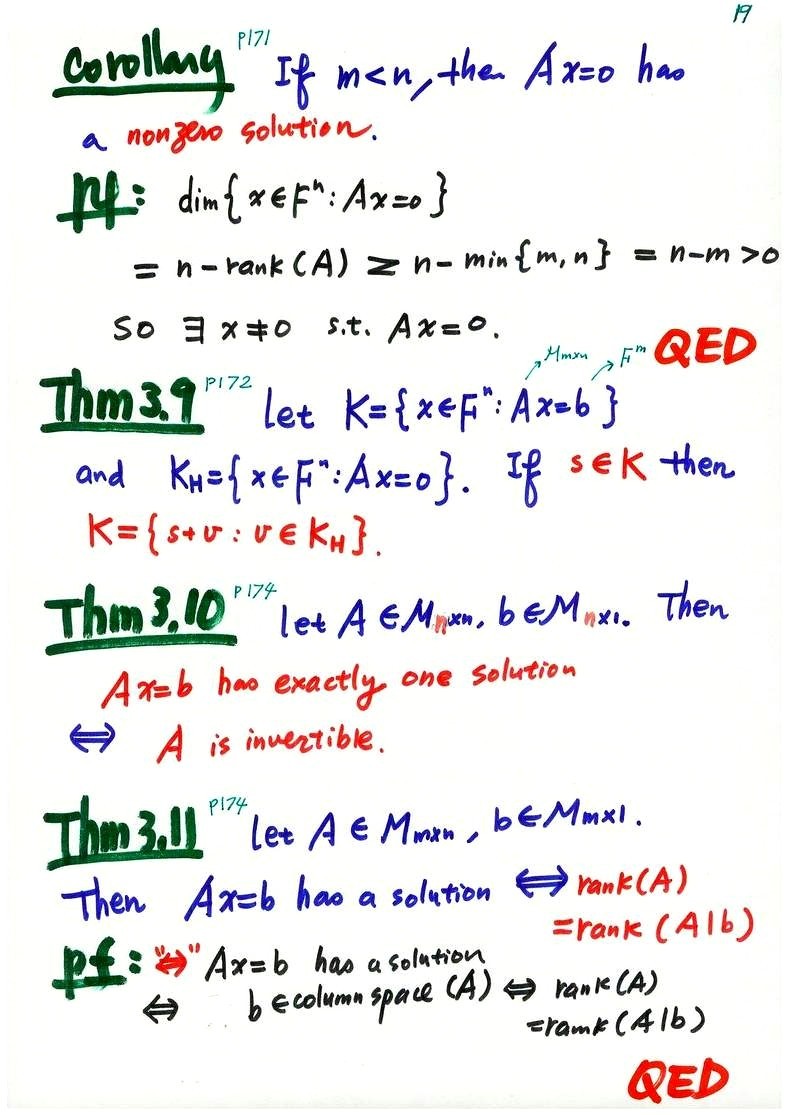 19
Corollary P171 If m<n, then Ax=0 has
a nonzero solution.
pf: dim{x∈Fⁿ: Ax=0}
= n-rank(A) ≥ n-min{m,n} = n-m>0
So ∃ x≠0 s.t. Ax=0. QED
Mmxn Fᵐ
Thm 3.9 P172 let K={x∈Fⁿ: Ax=b}
and KH={x∈Fⁿ: Ax=0}. If s∈K then
K={s+v : v∈KH}.
Thm 3.10 P174 let A∈Mnxn, b∈Mnx1. Then
Ax=b has exactly one solution
⇔ A is invertible.
Thm 3.11 P174 let A∈Mmxn, b∈Mmx1.
Then Ax=b has a solution ⇔ rank(A)
=rank(A|b)
pf: "⇔" Ax=b has a solution
⇔ b∈column space(A) ⇔ rank(A)
=ramk(A|b)
QED